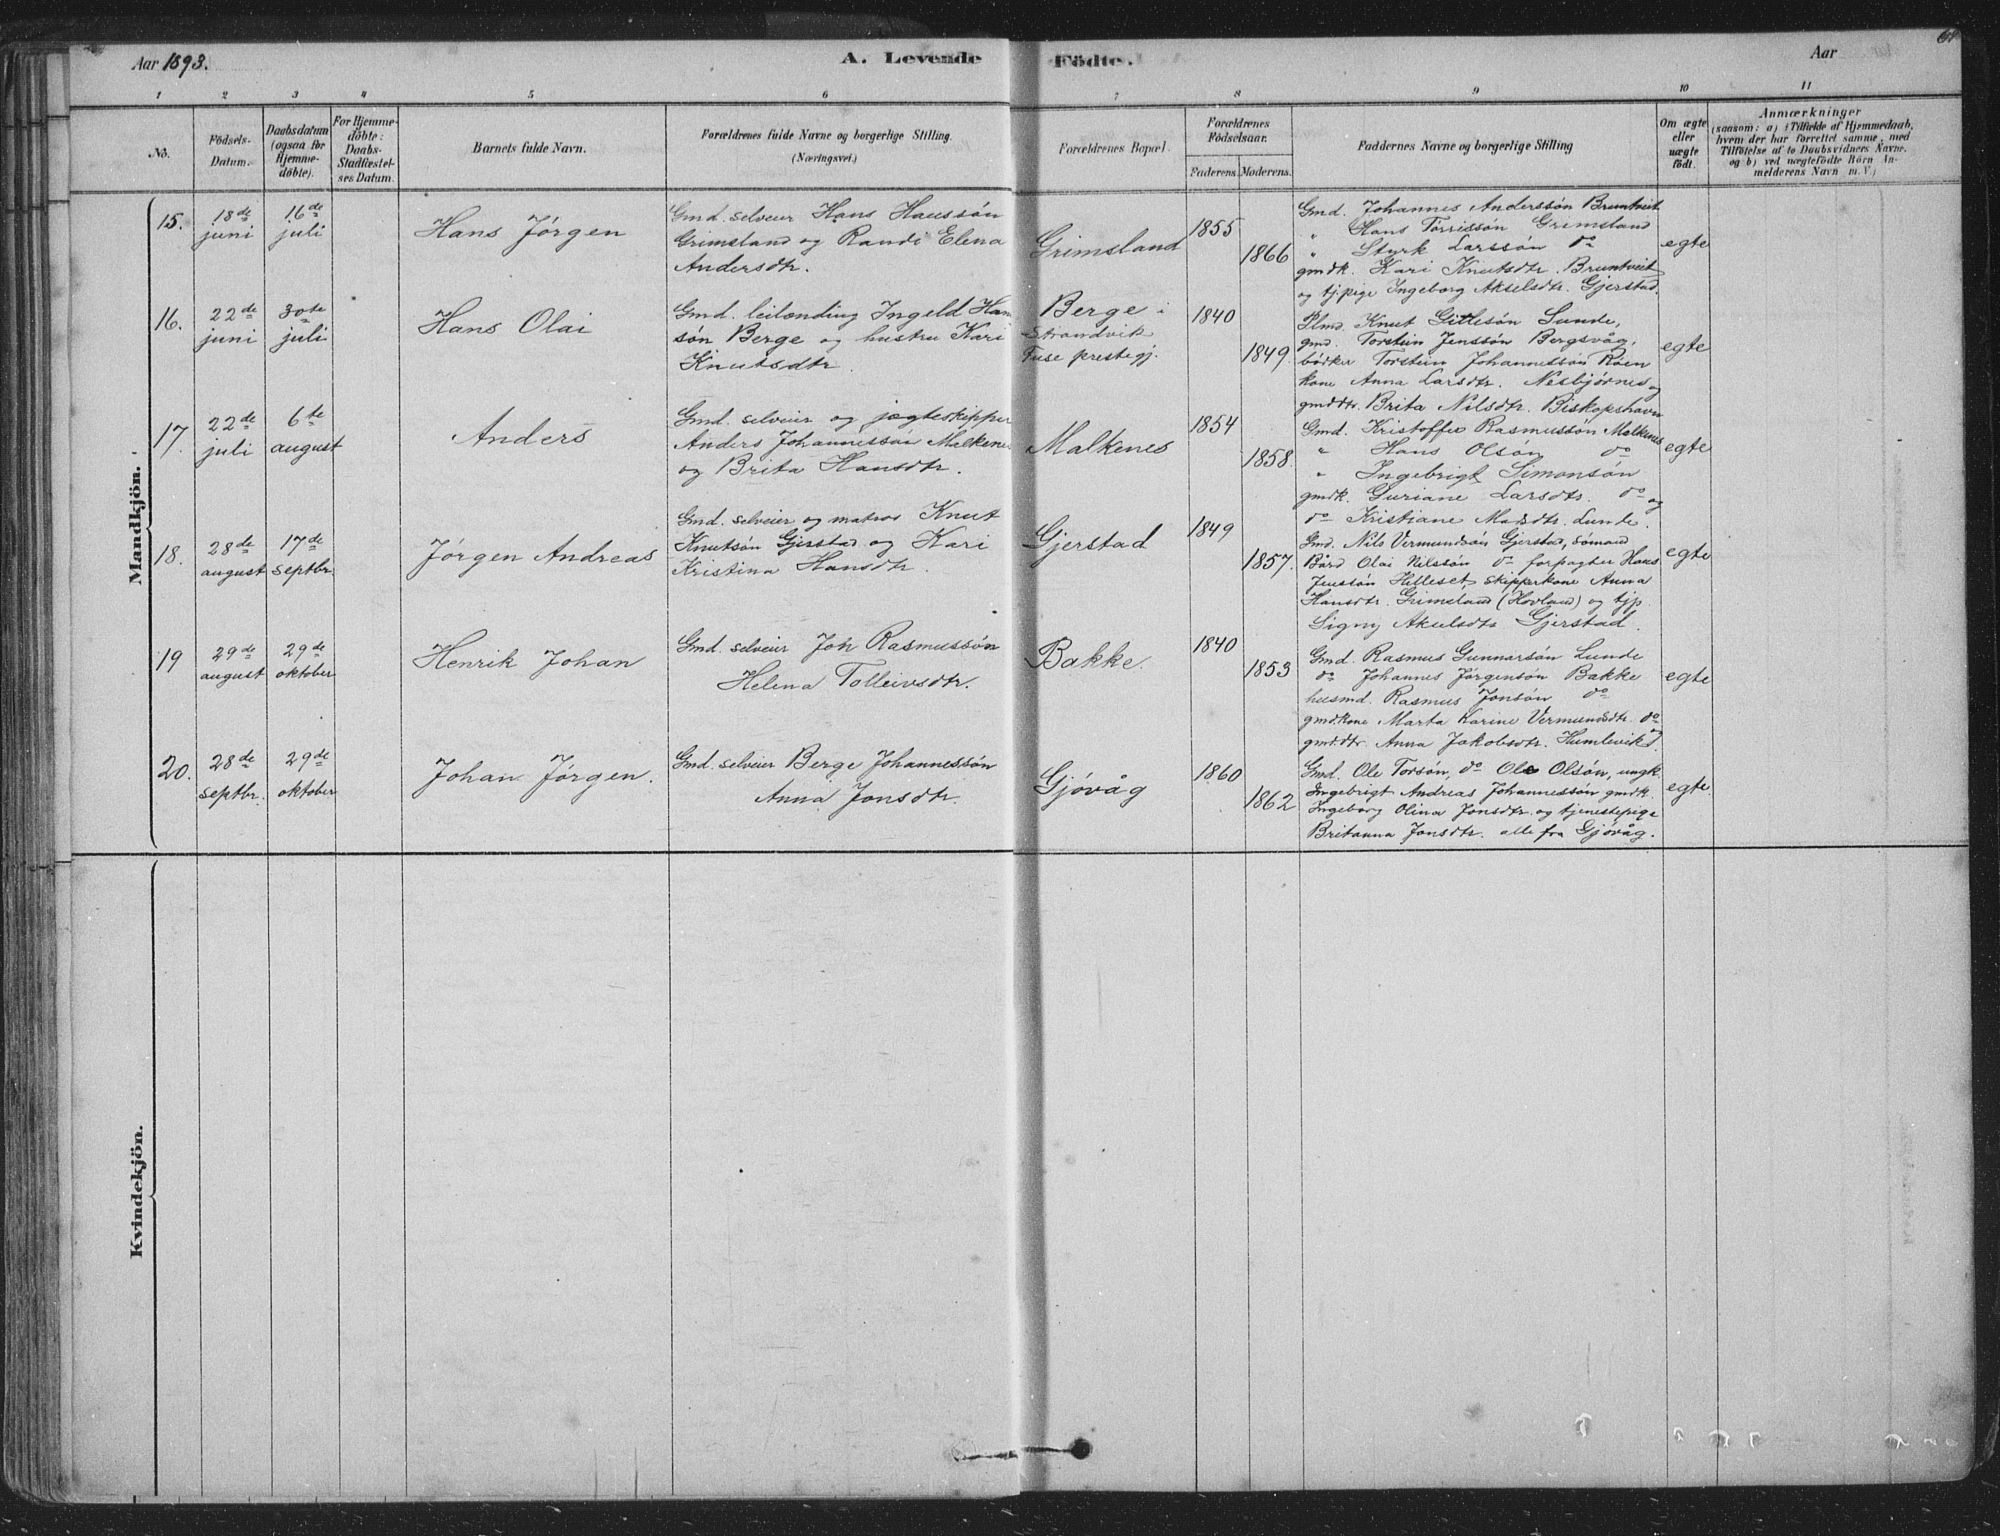 Aar 1893.
A. Levende Födte.
Aar
1 2 3 4 5 6 7 8 9 10 11
No.
Födsels-
Datum.
Daabsdatum
(ogsaa for
Hjemme-
döbte).
For Hjemme-
döbte:
Daabs-
Stadfæstel-
ses Datum.
Barnets fulde Navn.
Forældrenes fulde Navne og borgerlige Stilling.
(Næringsvei.)
Forældrenes Bopæl.
Forældrenes
Födselsaar.
Faderens. Moderens.
Faddernes Navne og borgerlige Stilling
Om ægte
eller
uægte
födt.
Anmærkninger
(saasom: a) i Tilfælde af Hjemmedaab,
hvem der har forrettet samme, med
Tilföielse af to Daabsvidners Navne.
og b) ved uægtefödte Börn An-
melderens Navn m. V.)
Mandkjön.
15.
18de
juni
16de
juli
Hans Jørgen
Gmd. selveier Hans Hanssön
Grimsland og Randi Elena
Andersdtr.
Grimsland
1855
1866
Gmd. Johannes Anderssön Bruntveit
" Hans Torrissön Grimsland
" Styrk Larssön do
gmdk. Kari Knutsdtr. Bruntveit
og tj.pige Ingeborg Akselsdtr. Gjerstad.
egte
16.
22de
juni
30te
juli
Hans Olai
Gmd. leilænding Ingeld Han
sön Berge og hustru Kari
Knutsdtr.
Berge i
Strandvik
Fuse prestegj.
1840
1849
Plmd. Knut Gitlesön Lunde,
gmd. Torstein Jenssön Bergsvåg,
bödker Torstein Johannessön Röen
kone Anna Larsdtr. Nesbjörnes og
gmddtr. Brita Nilsdtr. Biskopshavn
egte
17.
22de
juli
6te
august
Anders
Gmd. selveier og jægteskipper
Anders Johannessön Malkenes
og Brita Hansdtr.
Malkenes
1854
1858.
Gmd. Kristoffer Rasmussön Malkenes
" Hans Olsön do
" Ingebrigt Simonsön
gmdk. Guriane Larsdtr. do og
do Kristiane Madsdtr. Lunde.
egte
18.
28de
august
17de
septbr.
Jørgen Andreas
Gmd. selveier og matros Knut
Knutsön Gjerstad og Kari
Kristina Hansdtr.
Gjerstad
1849
1857.
Gmd. Nils Vermundsön Gjerstad, sömand
Bård Olai Nilssön do forpagter Hans
Jenssön Hilleset, skipperkone Anna
Hansdtr. Grimsland (Hovland) og tjp.
Signy Akselsdtr. Gjerstad.
egte
19
29de
august
29de
oktober
Henrik Johan
Gmd. selveier Joh Rasmussön
Helena Tolleivsdtr.
Bakke.
1840
1853
Gmd. Rasmus Gunnarsön Lunde
do Johannes Jørgensön Bakke
husmd. Rasmus Jonsön do
gmdkone Marta Karine Vermundsdtr. do og
gmddtr. Anna Jakobsdtr. Humlevik
egte
20.
28de
septbr.
29de
oktober
Johan Jørgen.
Gmd. selveier Berge Johannessön
Anna Jonsdtr.
Gjövåg
1860
1862
Gmd. Ole Torsön, do Ole Olsön, ungk.
Ingebrigt Andreas Johannessön gmdk.
Ingeborg Olina Jonsdtr. og tjenestepige
Britanna Jonsdtr. alle fra Gjövåg.
egte.
Kvindekjön.